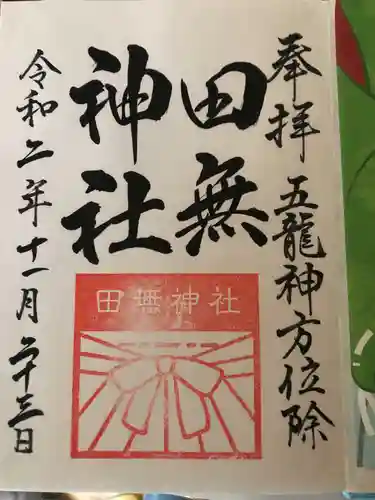 奉拝 五龍神方位除
田無
神社
令和二年十一月二十三日
田無神社